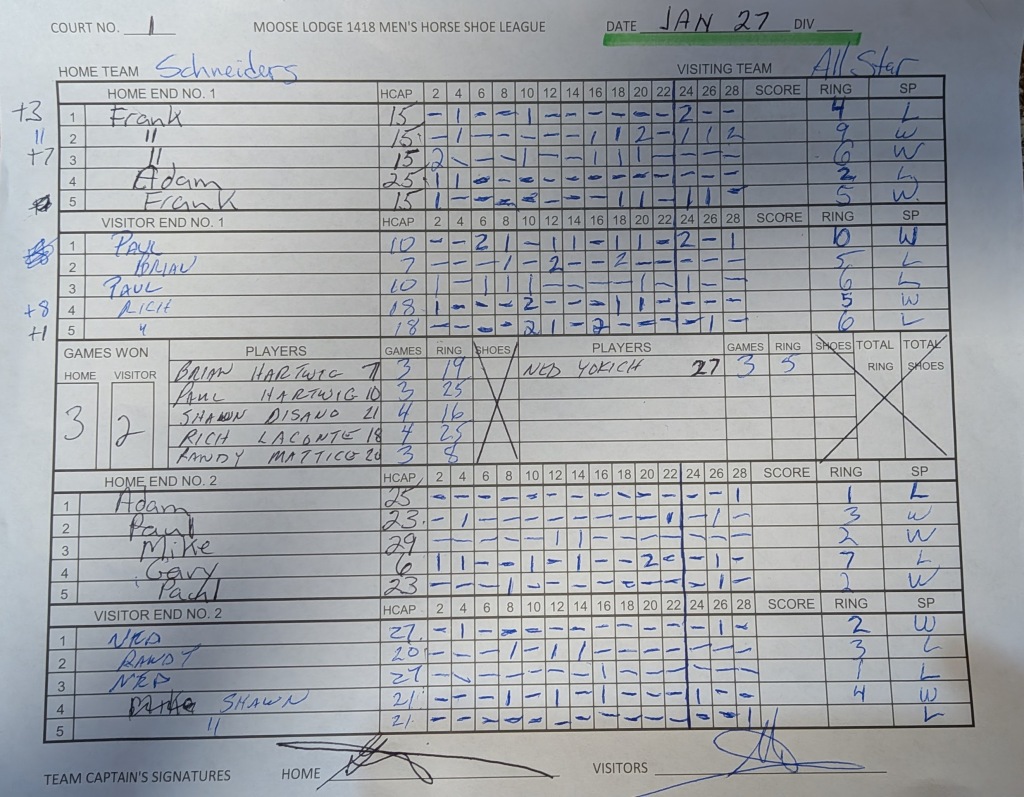 COURT NO. 1 MOOSE LODGE 1418 MEN'S HORSE SHOE LEAGUE DATE JAN 27 DIV
HOME TEAM Schneiders VISITING TEAM All Star
HOME END NO. 1 HCAP 2 4 6 8 10 12 14 16 18 20 22 24 26 28 SCORE RING SP
+3 1 Frank 15 - 1 - - 1 - - - - - - 2 - - 4 L
11 2 " 15 - 1 - - - - - 1 1 2 - 1 1 2 9 W
+7 3 " 15 2 - - - 1 - - 1 1 1 - - - - 6 W
4 Adam 25 1 1 - - - - - - - - - - - - 2 L
5 Frank 15 1 - - - - - - - 1 1 - 1 1 - 5 W
VISITOR END NO. 1 HCAP 2 4 6 8 10 12 14 16 18 20 22 24 26 28 SCORE RING SP
1 PAUL 10 - - 2 1 - 1 1 - 1 1 - 2 - 1 10 W
2 BRIAN 7 - - - 1 - 2 - - 2 - - - - - 5 L
3 PAUL 10 1 - 1 1 1 - - - - 1 - 1 - - 6 L
+8 4 RICH 18 1 - - - 2 - - - 1 1 - - - - 5 W
+1 5 " 18 - - - - 2 1 - 2 - - - - 1 - 6 L
GAMES WON PLAYERS GAMES RING SHOES PLAYERS GAMES RING SHOES TOTAL RING TOTAL SHOES
HOME VISITOR
3 2
BRIAN HARTWIG 7 3 19 NED YOKICH 27 3 5
PAUL HARTWIG 10 3 25
SHAWN DISANO 21 4 16
RICH LACONTE 18 4 25
RANDY MATTICE 20 3 8
HOME END NO. 2 HCAP 2 4 6 8 10 12 14 16 18 20 22 24 26 28 SCORE RING SP
1 Adam 25 - - - - - - - - - - - - - 1 1 L
2 Paul 23 - 1 - - - - - - - - 1 - 1 - 3 W
3 Mike 29 - - - - - 1 1 - - - - - - - 2 W
4 Gary 6 1 1 - - 1 - 1 - - 2 - - 1 - 7 L
5 Paul 23 - - - 1 - - - - - - - - 1 - 2 W
VISITOR END NO. 2 HCAP 2 4 6 8 10 12 14 16 18 20 22 24 26 28 SCORE RING SP
1 NED 27 - 1 - - - - - - - - - - 1 - 2 W
2 RANDY 20 - - - 1 - 1 1 - - - - - - - 3 L
3 NED 27 - - - - - - - 1 - - - - - - 1 L
4 SHAWN 21 - - - 1 - 1 - 1 - - - 1 - - 4 W
5 " 21 - - - - - - - - - - - - - 1 L
TEAM CAPTAIN'S SIGNATURES HOME VISITORS